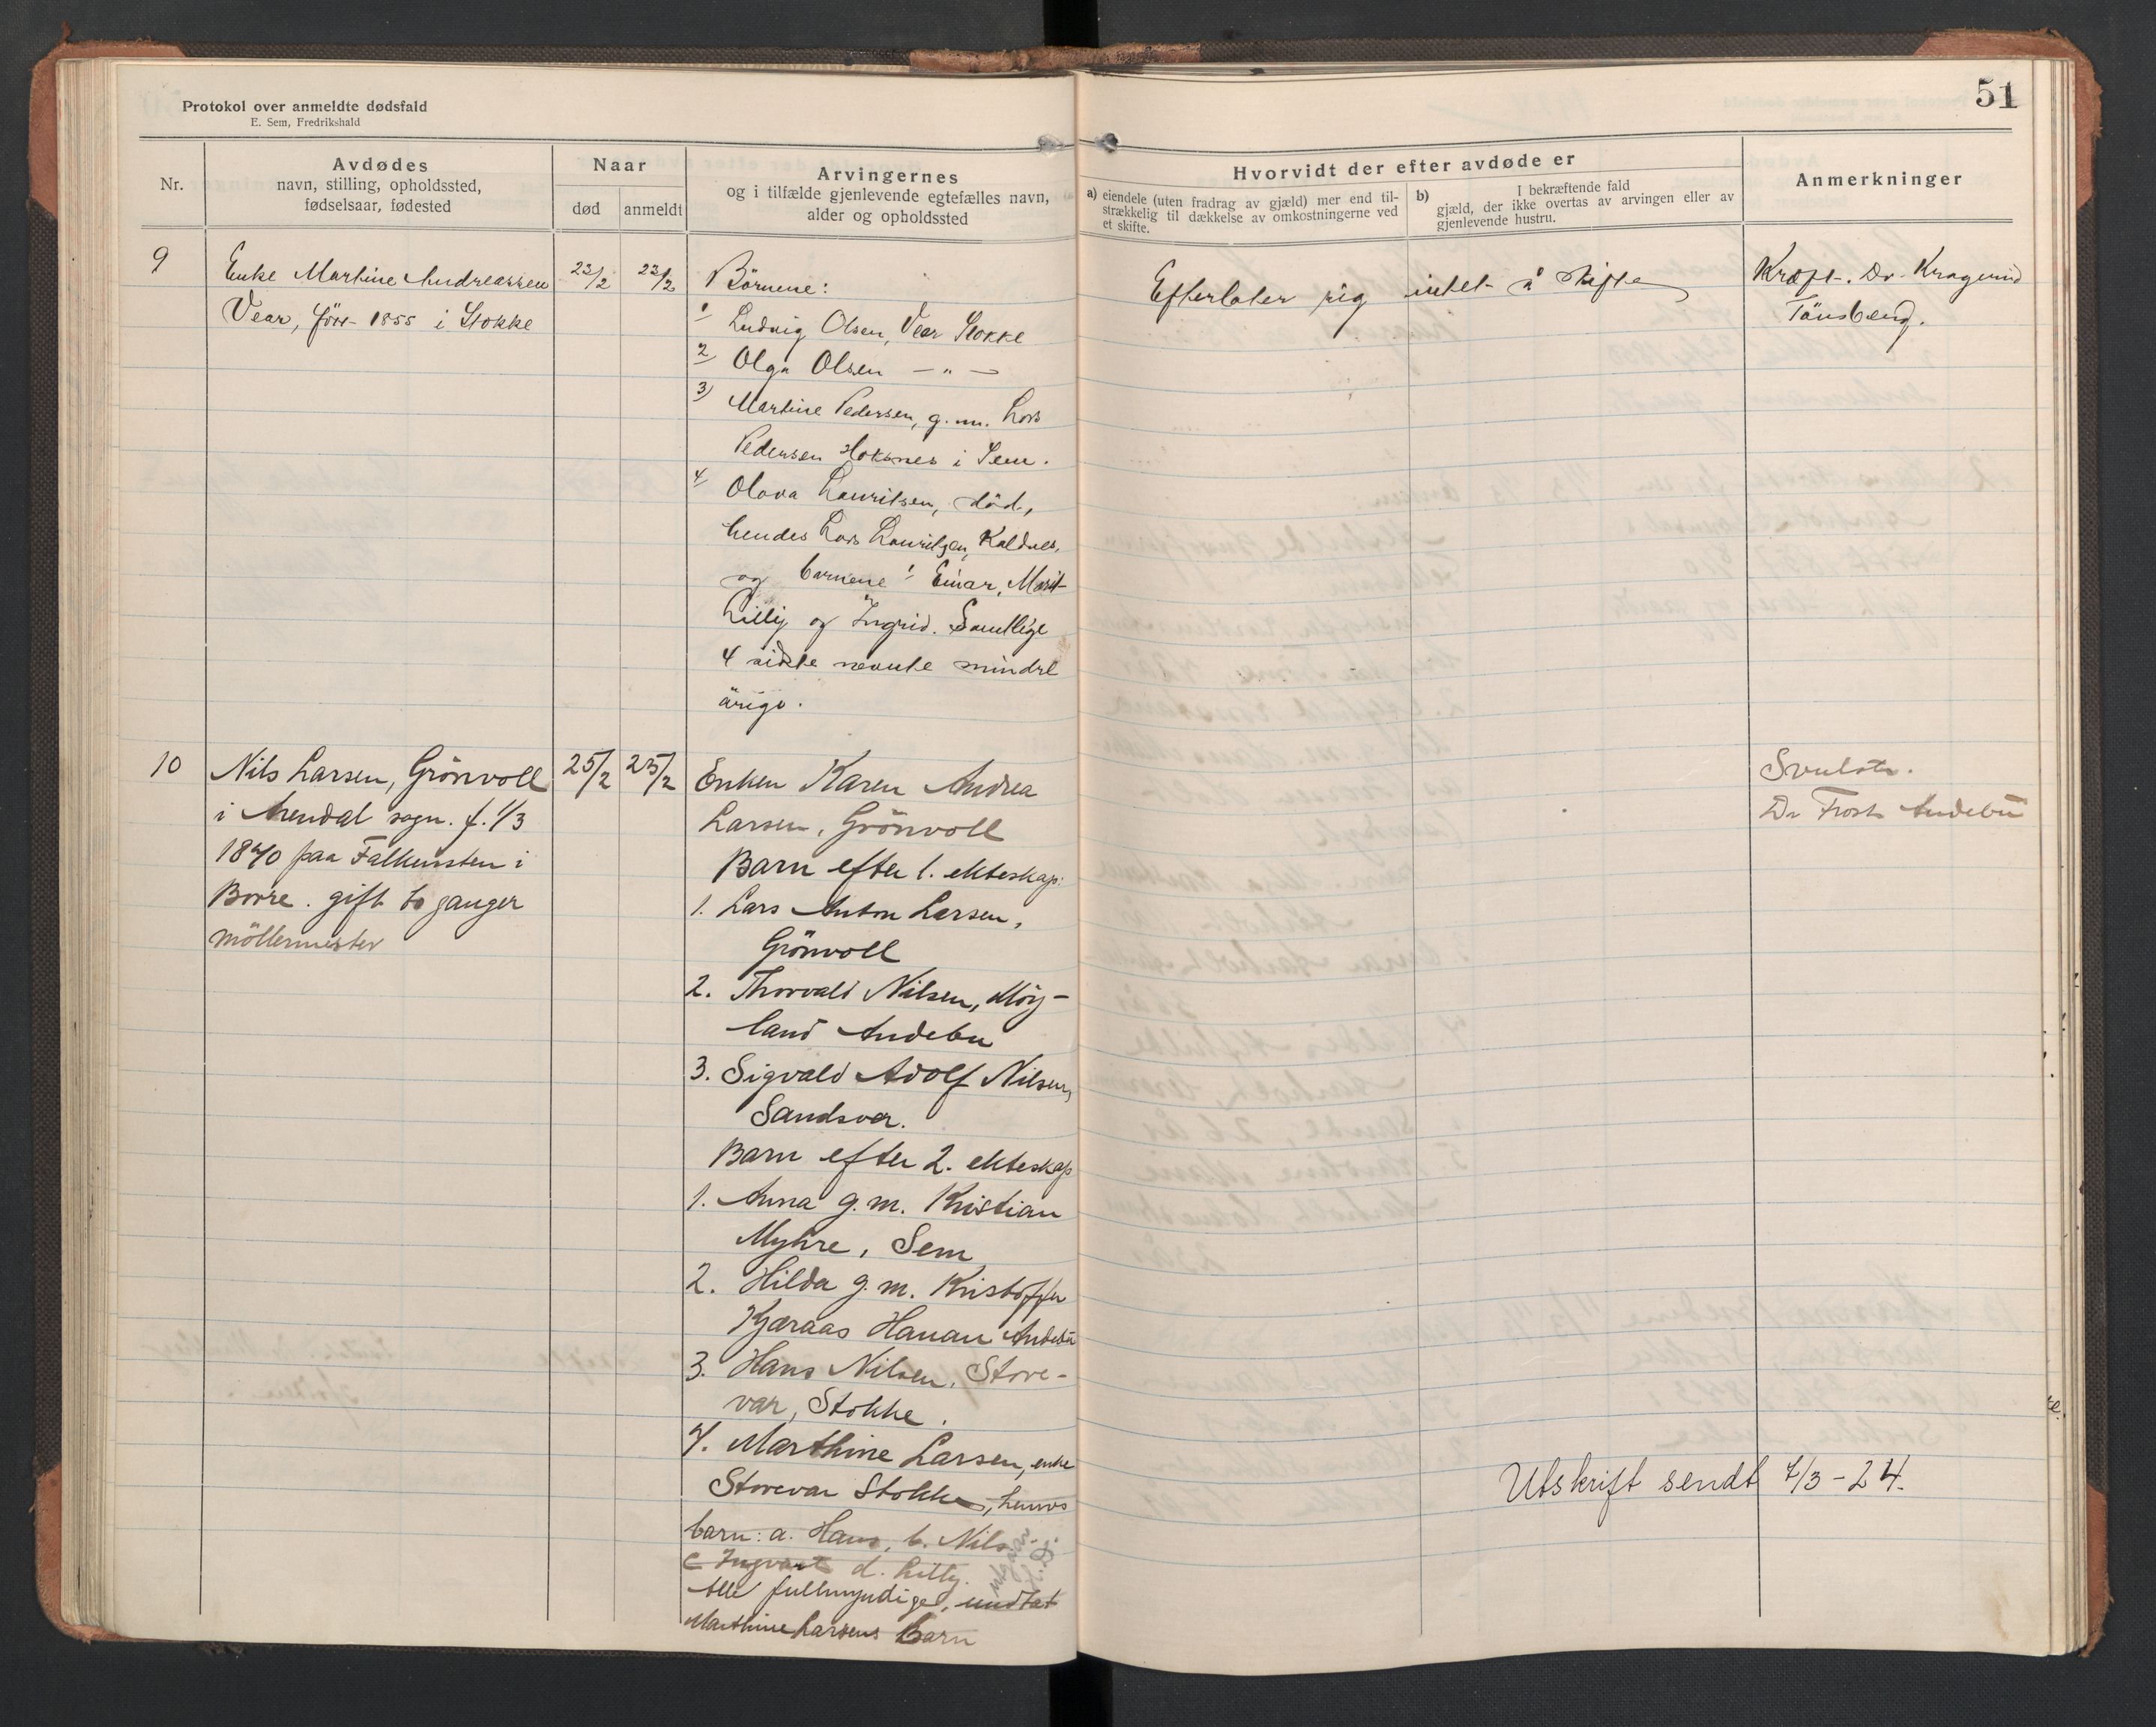 Protokol over anmeldte dødsfald
E. Sem, Fredrikshald
51
Nr.
Avdødes
navn, stilling, opholdssted,
fødselsaar, fødested
Naar
død
anmeldt
Arvingernes
og i tilfælde gjenlevende egtefælles navn,
alder og opholdssted
Hvorvidt der efter avdøde er
a) eiendele (uten fradrag av gjæld) mer end til-
strækkelig til dækkelse av omkostningerne ved
et skifte.
b) I bekræftende fald
gjæld, der ikke overtas av arvingen eller av
gjenlevende hustru.
Anmerkninger
9
Enke Martine Andreassen
Vear, født 1855 i Stokke
23/2
23/2
Börnene:
1/ Ludvig Olsen, Vear Stokke
2/ Olga Olsen — " —
3/ Martine Pedersen, g. m. Lars
Pedersen Hoksnes i Sem.
4/ Olava Lauritsen, död,
hendes Lars Lauritsen, Kaldnes,
og barnene: Einar, Marit
Lilly og Ingrid. Samtlige
4 sidste nevnte mindre
årige.
Efterlater sig intet å skifte
Kræft. Dr. Kragerud
Tönsberg.
10
Nils Larsen, Grönvoll
i Arendal sogn. f. 1/3
1840 paa Falkensten i
Borre. gift to ganger
möllermester
25/2
25/2
Enken Karen Andrea
Larsen, Grönvoll
Barn efter 1. ekteskap:
1. Lars Anton Larsen,
Grönvoll
2. Thorvald Nilsen, Möy-
land Andebu
3. Sigvald Adolf Nilsen,
Sandsver.
Barn efter 2. ekteskap
1. Anna g. m. Kristian
Myhre, Sem
2. Hilda g. m. Kristoffer
Kjæraas Hanan Andebu
3. Hans Nilsen, Store-
var, Stokke.
4. Marthine Larsen, enke
Storevar Stokke, hennes
barn: a. Hans, b. Nils
c Ingvart d. Lilly.
Alle fullmyndige, undtat
Marthine Larsens Barn
utgaar
Svulst.
Dr Frost Andebu
Utskrift sendt 7/3-24.